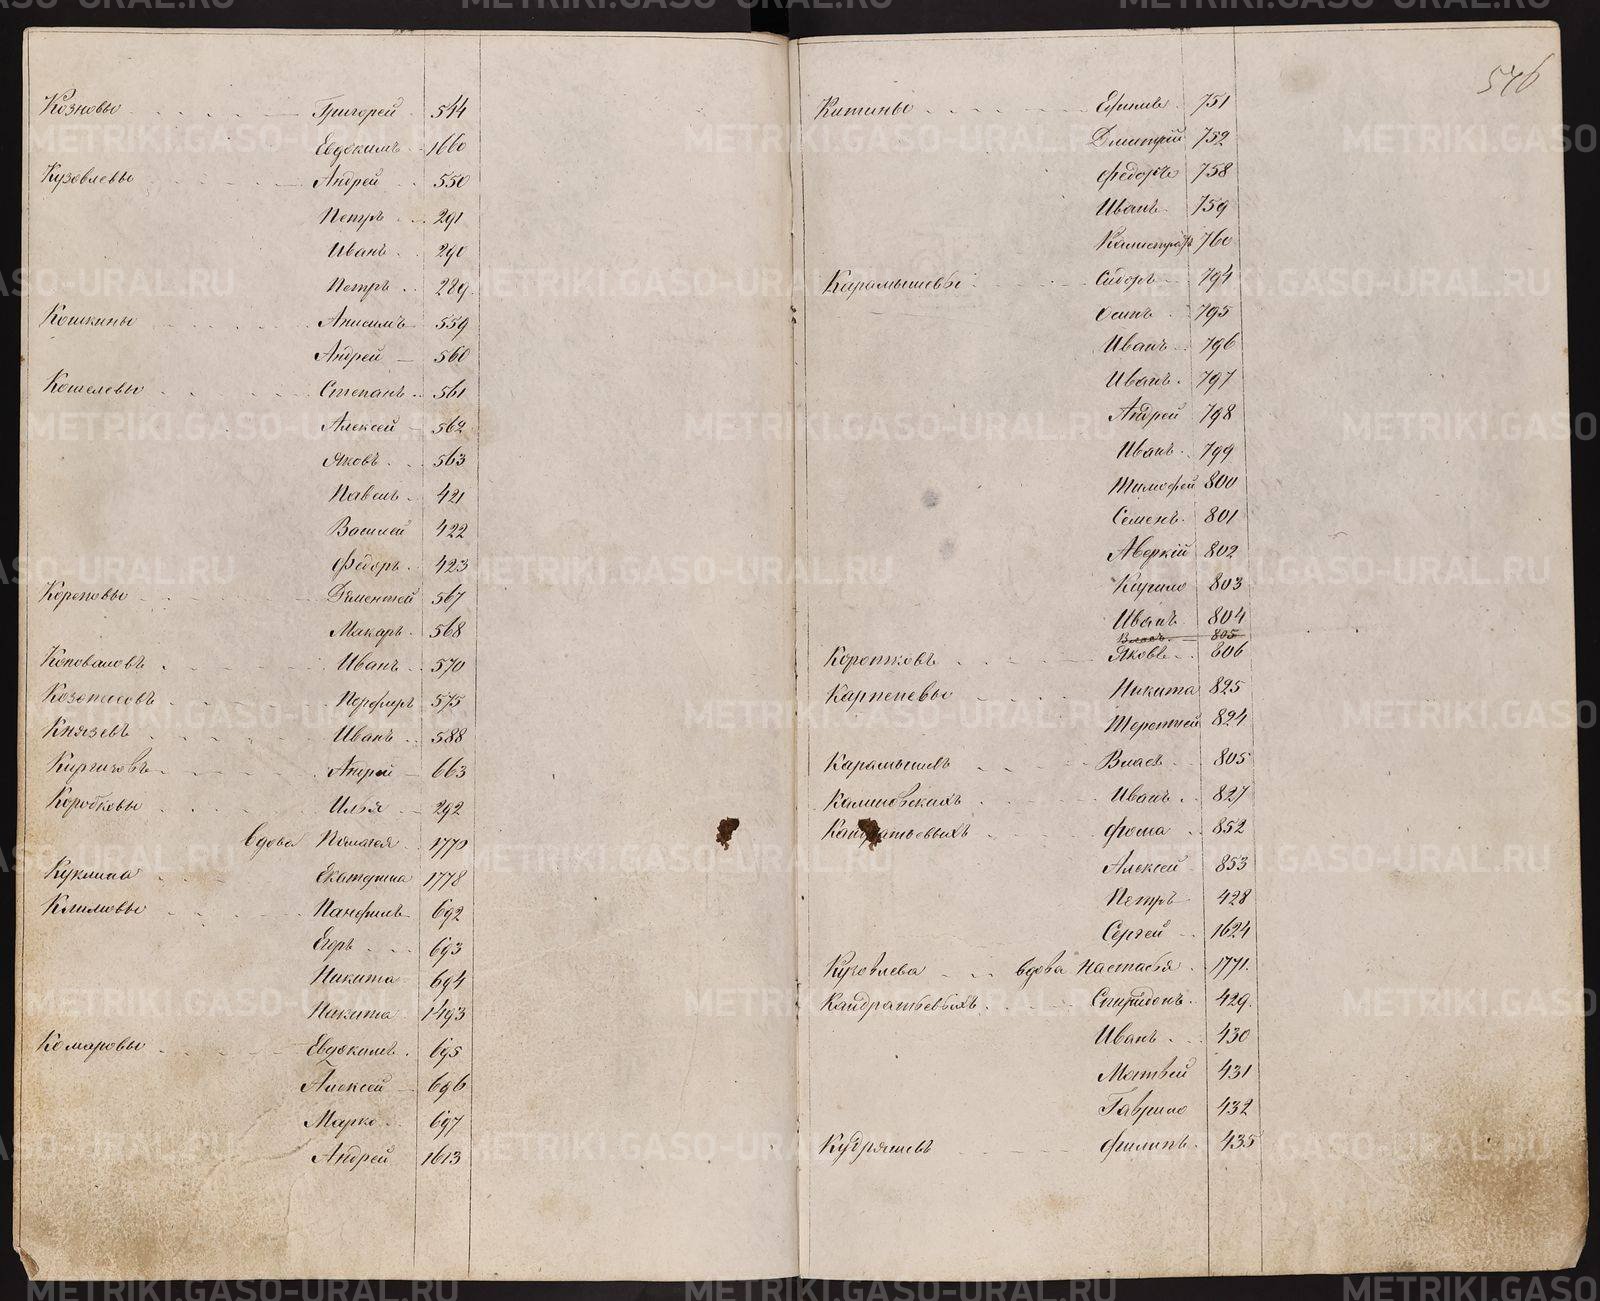 Козновы Григорей 544
Евдокимъ 1660
Кузовлевы Андрей 550
Петръ 291
Иванъ 290
Петръ 289
Кошкины Анисимъ 559
Андрей 560
Кошелевы Степанъ 561
Алексей 562
Яковъ 563
Павелъ 421
Василей 422
Федоръ 423
Кореповы Дементей 567
Макаръ 568
Коноваловъ Иванъ 570
Порфиръ 575
Князевъ Иванъ 588
Киргизовъ Андрей 663
Коробковы Илья 292
вдова Пелагея 1770
Куклина Екатерина 1778
Климовы Панфилъ 692
Егоръ 693
Никита 694
Никита 1493
Комаровы Евдокимъ 695
Алексей 696
Марко 697
Андрей 1613
546
Китины Ефимъ 751
Дмитрій 752
Федоръ 758
Иванъ 759
Калистратъ 760
Карамышевы Сидоръ 794
Осипъ 795
Иванъ 796
Иванъ 797
Андрей 798
Иванъ 799
Тимофей 800
Семенъ 801
Аверкій 802
Кирило 803
Иванъ 804
Власъ 805
Коротковъ Яковъ 806
Карпеневы Никита 825
Терентей 824
Карамышевъ Власъ 805
Калиновскихъ Иванъ 827
Кандратьевыхъ Фома 852
Алексей 853
Петръ 428
Сергей 1624
Куковлева вдова Настасья 1771
Кандратьевыхъ Спиридонъ 429
Иванъ 430
Матвей 431
Гаврило 432
Кудряшевъ Филипъ 435
METRIKI.GASO-URAL.RU